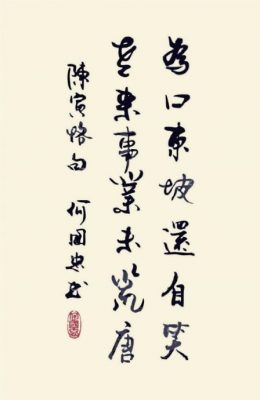 為口東坡還自笑
老來事業未荒唐
陳寅恪句 何國忠书